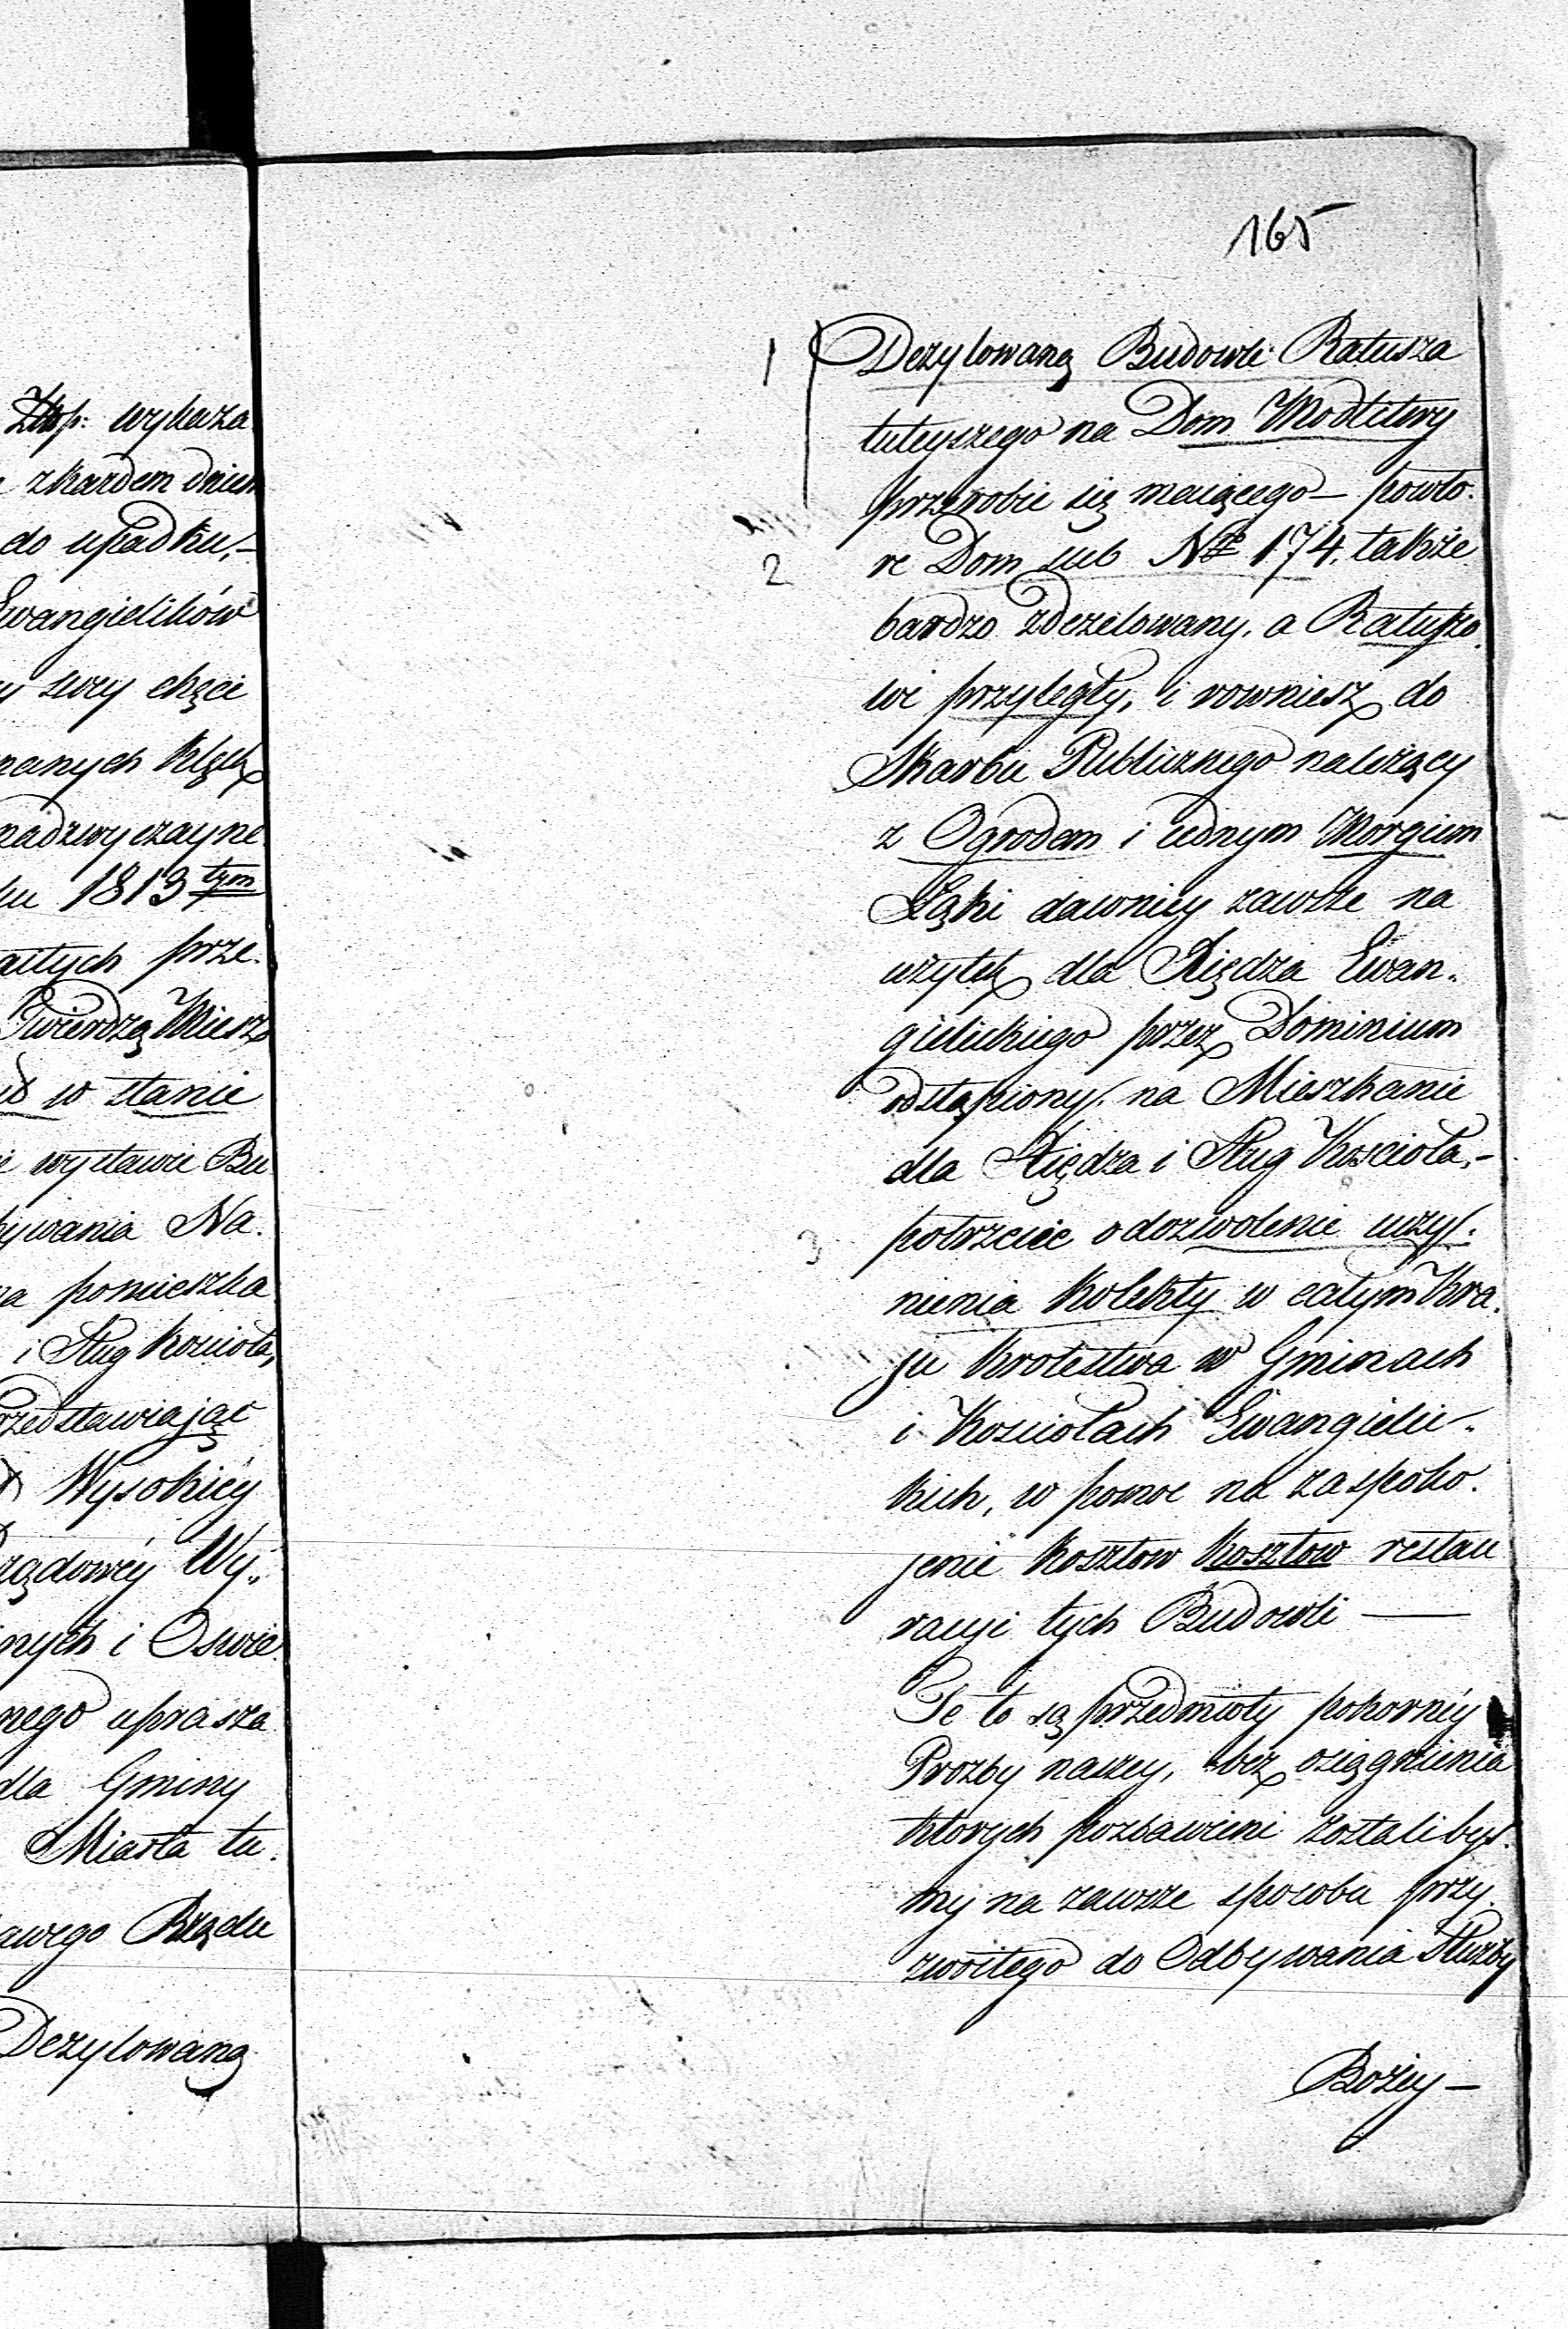 Złlp: wykaza
zkażdem dniem
do upadku,–
Ewangielików
swey chęci
nanych klęsk
nadzwyczayne
ku 1813 tym
aitych prze.
Twierdzą Miesz
w stanie
wystawie Bu
bywania Na.
na pomieszka
i Sług kozcioła,
rzedstawiając
Wysokiéy
rządowéy Wy„
nych i Oswie
nego uprasza
dla Gminy
Miasta tu.
awego Rządu
Dezylowaną
165
1 Dezylowaną Budowli Ratusza
tuteyszego na Dom Modlitwy
przerobić się maiącego – powto.
2 re Dom sub Nro 174. także
bardzo zdezelowany, a Ratuszo.
wi przyległy, i rowniesz do
Skarbu Publicznego należący
z Ogrodem i iednym Morgium
Łąki dawniey zawsze na
użytek dla Xiędza Ewan.
gielickiego przez Dominium
odstąpiony, na Mieszkanie
dla Xiędza i Sług Koscioła,–
3 potrzecie o dozwolenie uczy.
nienia Kolekty w całym Kra.
ju Krolestwa w Gminach
i Kosciołach Ewangielic„
kich, w pomoc na zaspoko.
jenie kosztow kosztow restau
racyi tych Budowli —
Te to są przedmioty pokornéy
Prozby naszey, bez osiągnienia
ktorych pozbawieni zostalibys.
my na zawsze sposobu przy.
zwoitego do Odbywania Służby
Bożey –